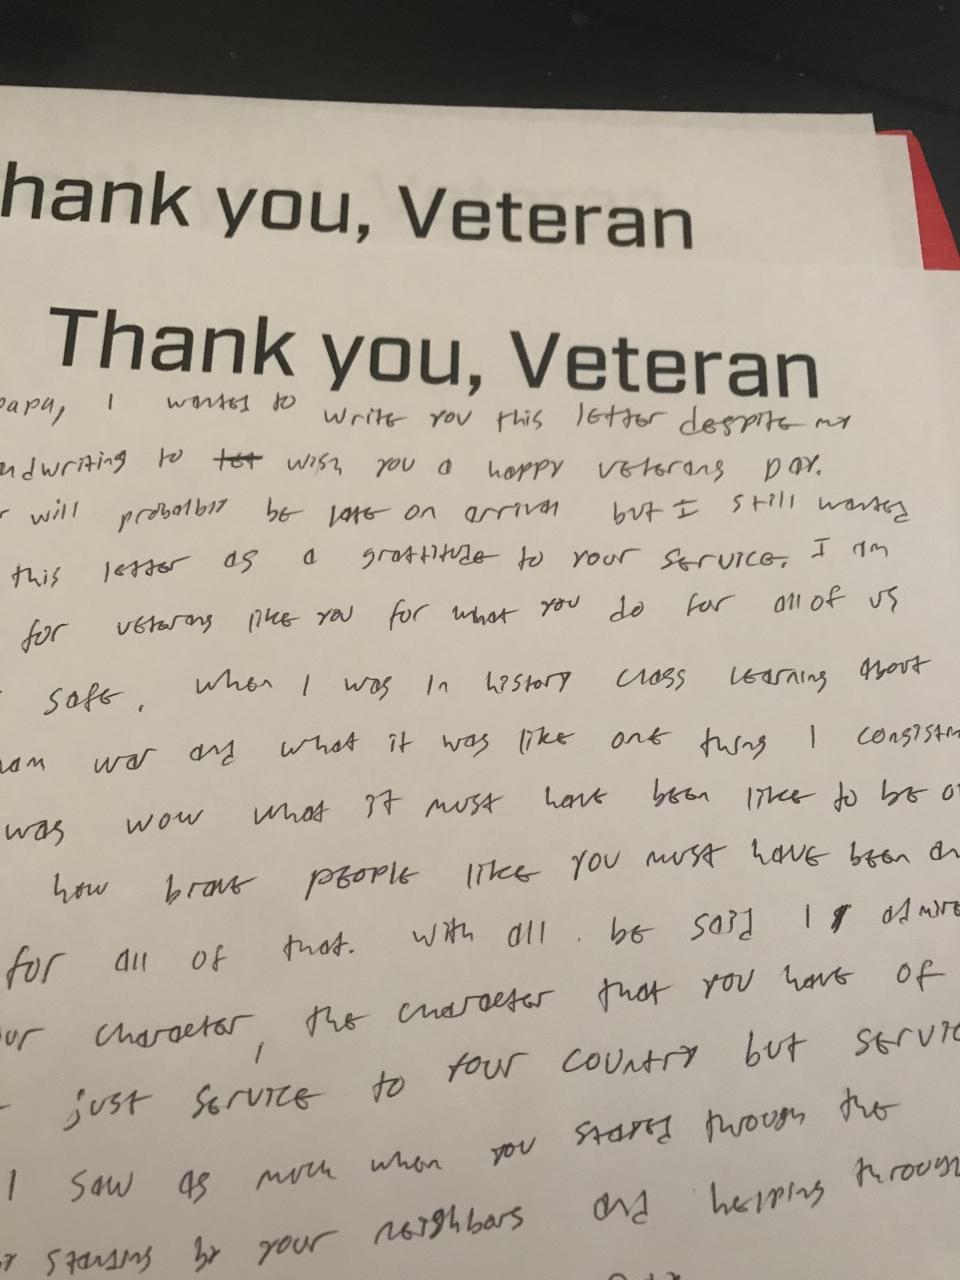 hank you, Veteran
Thank you, Veteran
papa, I wanted to write you this letter despite my
ndwriting to wish you a happy veterans Day.
will probalbly be late on arrival but I still wanted
this letter as a gratitude to your service. I am
for veterans like you for what you do for all of us
safe. when I was in history class learning about
nam war and what it was like one thing I consistn
was wow what it must have been like to be o
how brave people like you must have been an
for all of that. with all be said I admire
ur character, the character that you have of
just service to your country but servic
I saw as much when you stayed though the
by your neighbors and helping through